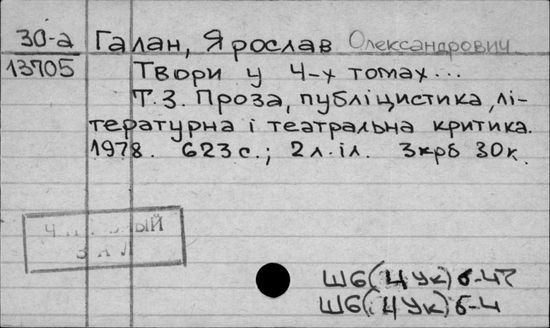 30-а Галан, Ярослав Олександрович
13705 Твори у 4-х томах...
Т.3. Проза, публіцистика, лі-
тературна і театральна критика.
1978. 623 с.; 2 л. іл. 3крб 30к.
ЗАЛ
Ш6(4Ук)6-4
Ш6(4Ук)6-4